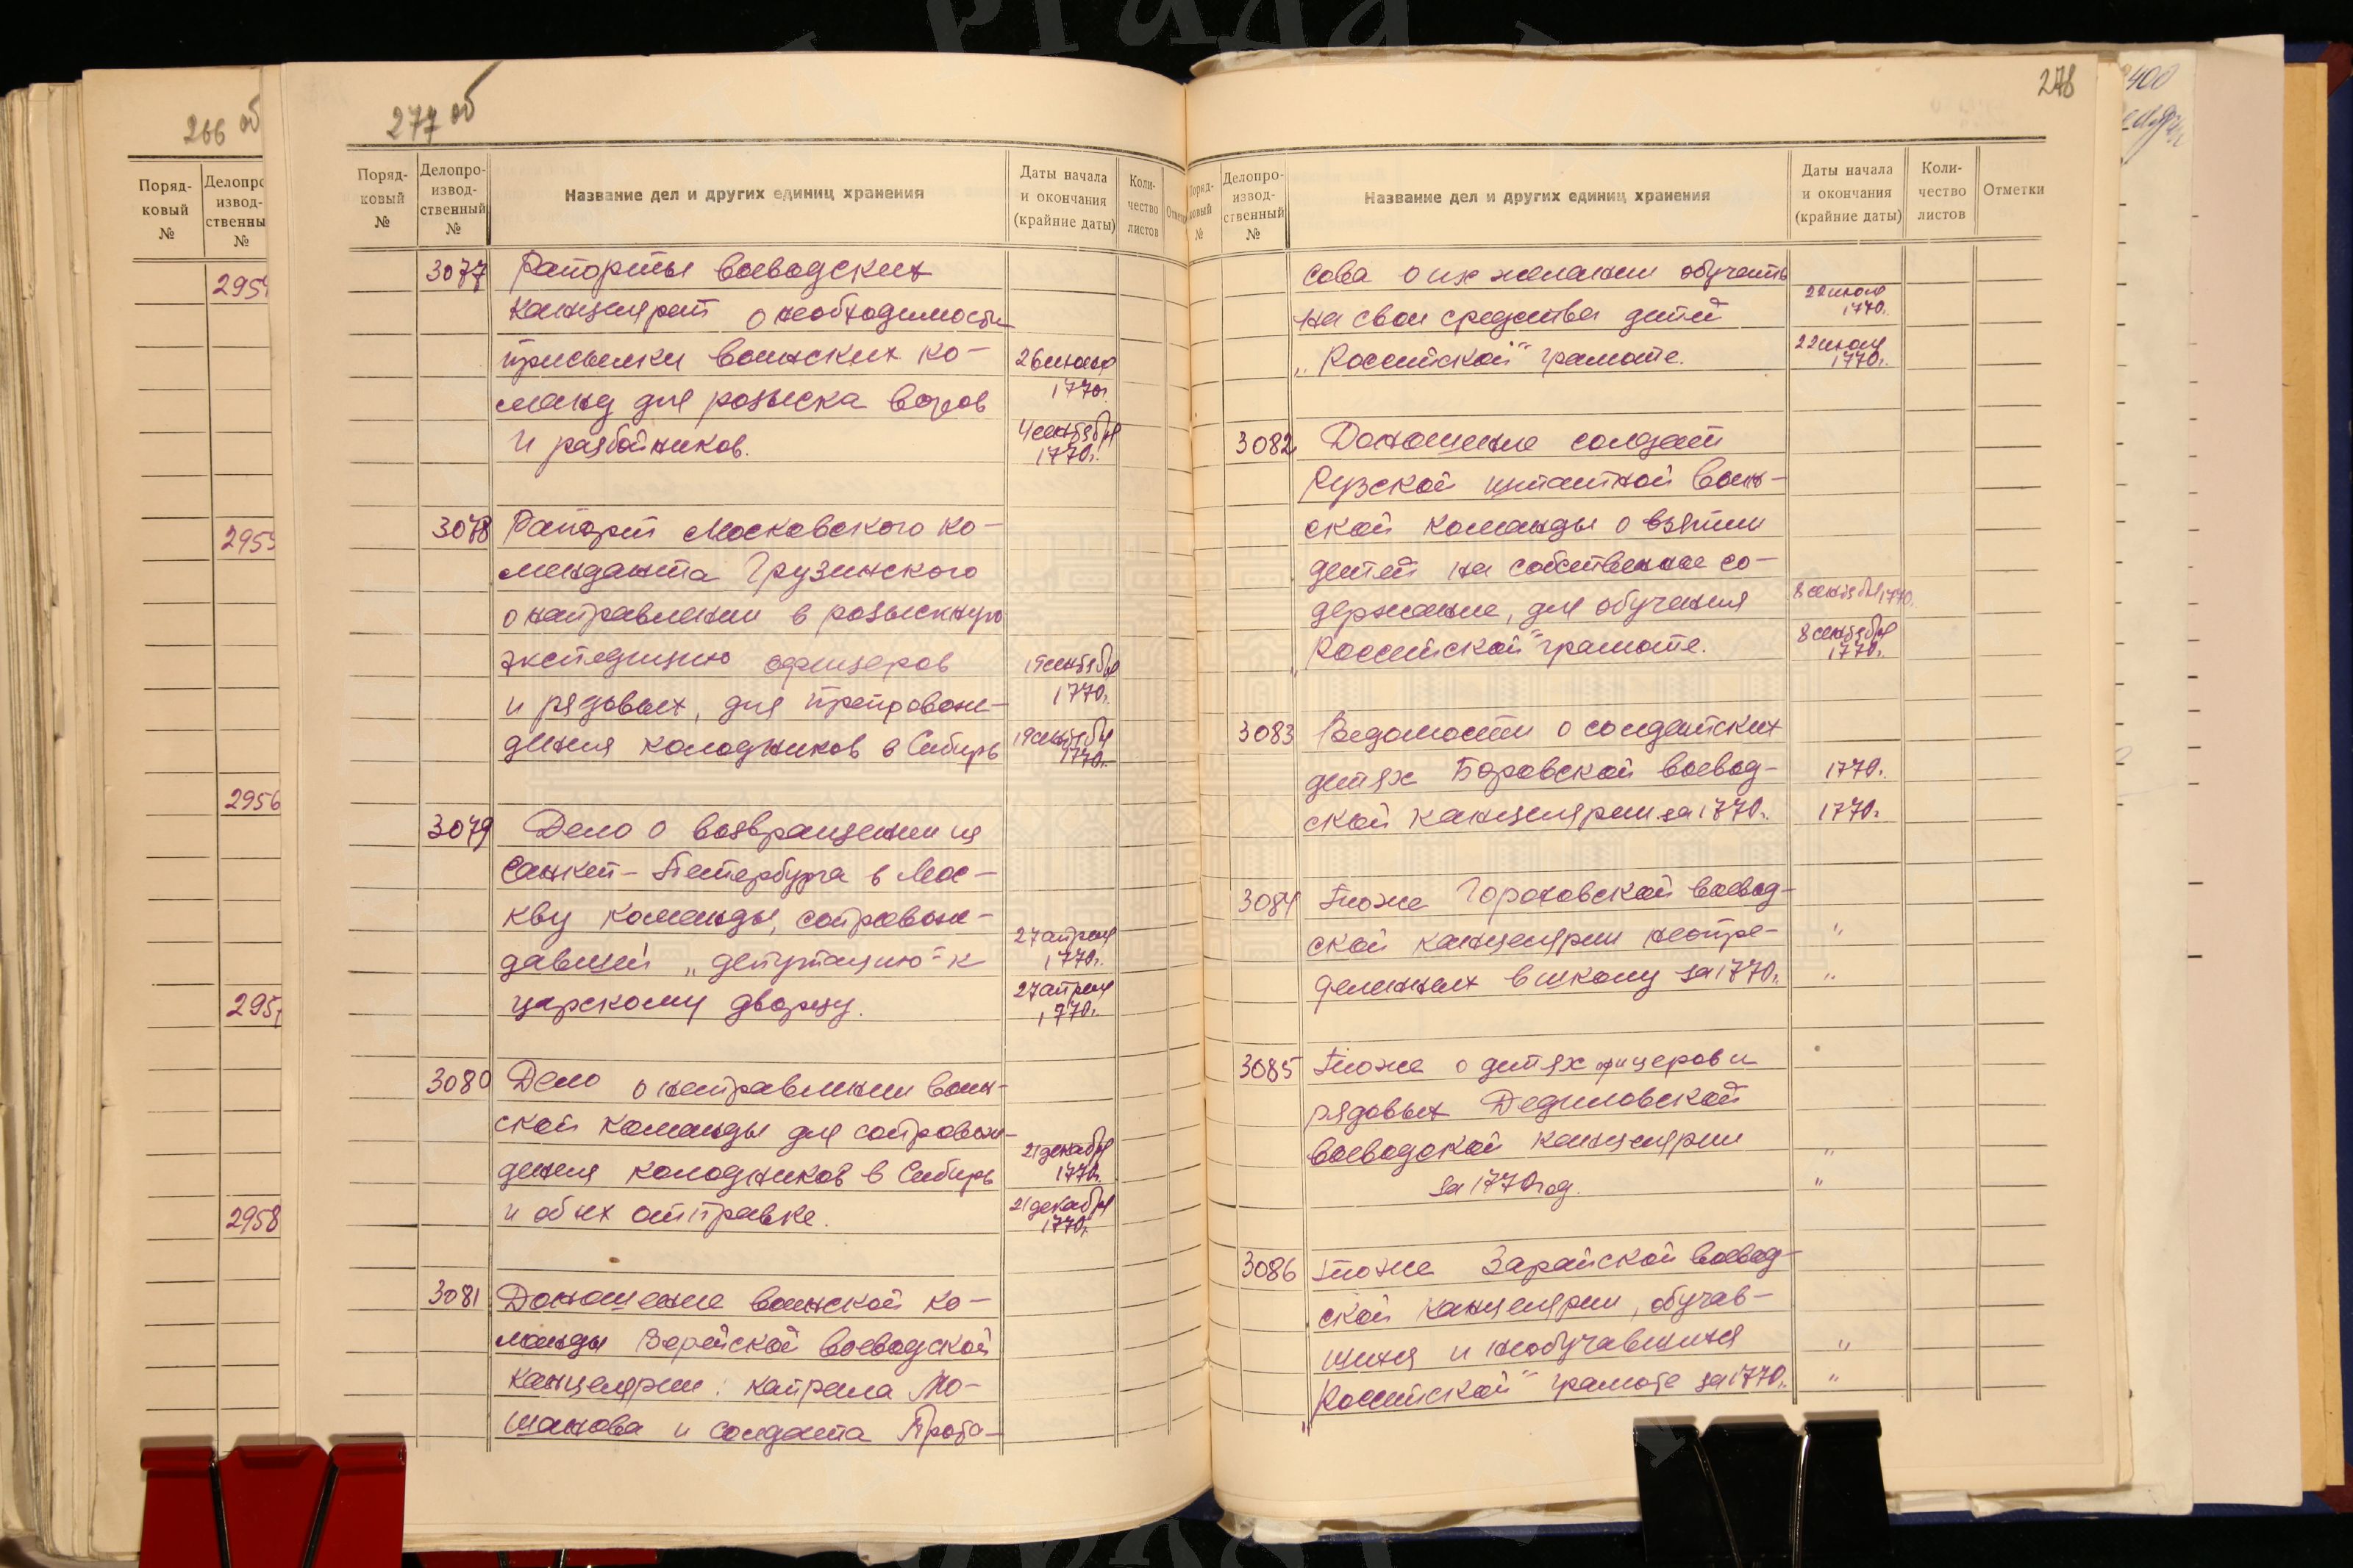 266 об
Поряд-
ковый
№
Делопро
извод-
ственны
№
295
295
2956
295
2958
277 об
Поряд-
ковый
№
Делопро-
извод-
ственный
№
Название дел и других единиц хранения
Даты начала
и окончания
(крайние даты)
Коли-
чество
листов
3077 Рапорты воеводских
канцелярий о необходимости
присылки воинских ко-
манд для розыска воров
и разбойников.
26 июля
1770г.
4 сентября
1770г.
3078 Рапорт Московского ко-
менданта Грузинского
о направлении в розыскную
экспедицию офицеров
и рядовых, для препровож-
дения колодников в Сибирь
19 сентября
1770г.
19 сентября
1770г.
3079 Дело о возвращении из
Санкт-Петербурга в Мос-
кву команды, сопровож-
давшей „депутацию" к
царскому дворцу.
27 апреля
1770г.
27 апреля
1770г.
3080 Дело о направлении воин-
ской команды для сопровож-
дения колодников в Сибирь
и об их отправке.
21 декабря
1770г.
21 декабря
1770г.
3081 Доношение воинской ко-
манды Верейской воеводской
канцелярии: капрала Мо-
шанова и солдата Прота-
278
Поряд-
ковый
№
Делопро-
извод-
ственный
№
Название дел и других единиц хранения
Даты начала
и окончания
(крайние даты)
Коли-
чество
листов
Отметки
сова о их желании обучать
на свои средства детей
„Российской" грамоте.
22 июля
1770г.
22 июля
1770г.
3082 Доношение солдат
Рузской штатной воин-
ской команды о взятии
детей на собственное со-
держание, для обучения
„Российской" грамоте.
8 сентября 1770г.
8 сентября
1770г.
3083 Ведомости о солдатских
детях Боровской воевод-
ской канцелярии за 1770г.
1770г.
1770г.
3084 Тоже Гороховской воевод-
ской канцелярии неопре-
деленных в школу за 1770г.
"
"
3085 Тоже о детях офицеров и
рядовых Дедиловской
воеводской канцелярии
за 1770 год.
"
"
3086 Тоже Зарайской воевод-
ской канцелярии, обучав-
шихся и необучавшихся
„Российской" грамоте за 1770г.
"
"
400